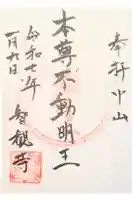 奉拝 中山
本尊不動明王
令和七年
一月九日
智観寺